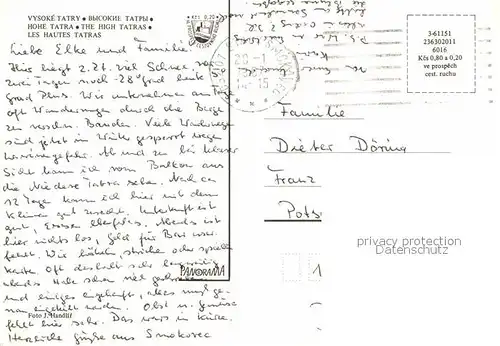 VYSOKÉ TATRY • ВЫСОКИЕ ТАТРЫ •
HOHE TATRA • THE HIGH TATRAS •
LES HAUTES TATRAS
Kčs 0,20
Liebe Elke und Familie.
Hier liegt z. Zt. viel Schnee, vor
zwei Tagen noch -28 Grad heute
Grad Plus. Wir unternehmen am Tage
oft Wanderungen durch die Berge
zu versch. Bauden. Viele Wanderwege
sind jetzt im Winter gesperrt wegen
Lawinengefahr. Ab und zu bei klarer
Sicht kann ich vom Balkon aus
die Niedere Tatra sehen. Nach ca
12 Tage kann ich hier mit dem
Klima gut zurecht. Unterkunft ist
gut, Essen ebenfalls. Abends ist
hier nichts los, Geld für Bar usw.
fehlt. Wir häkeln, stricken oder spielen
Karten. Oft deshalb sehr langweilig
abends. Habe schon viel gesehen
und einiges
fehlt hier sehr. Das wars in Kürze.
Herzliche Grüße aus Smokovec
PANORAMA
Foto J. Handlíř
3-61151
236302011
6016
Kčs 0,80 a 0,20
ve prospěch
cest. ruchu
Familie
Dieter Döring
Franz
Pots
privacy protection
Datenschutz
1